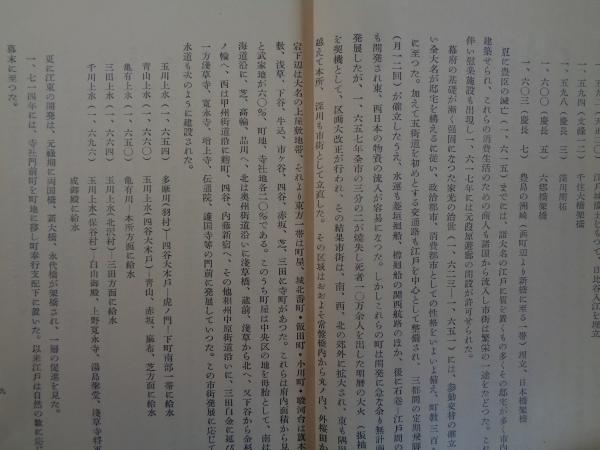 一、五九四（文禄三） 千住大橋架橋
一、五九八（慶長 三） 深川開拓
一、六〇〇（慶長 五） 六郷橋架橋
一、六〇三（慶長 七） 豊島の洲崎（西町辺より新橋に至る一帯）埋立、日本橋架橋
更に豊臣の滅亡（一、六一五）までには、諸大名の江戸に質を置くもの多くその邸宅が多く市内
建築せられ、これらの消費生活のための商人も諸国から流入し市街は繁栄の一途をたどつた。これ
伴い慰楽施設も出現し一、六一七年には元葭原遊廓の開設が許可せられた。
幕府の基礎が漸く強固になつた家光の治世（一、六二三―一、六五一）には、参勤交替の確立
い全大名が邸宅を構えるに従い、政治都市、消費都市としての性格をいよいよ備え、町数三百
に至つた。加えて五街道を初めとする交通路も江戸を中心として整備され、三都間の定期飛脚
（月一二回）が確立したうえ、水運も菱垣廻船、樽廻船の関西航路のほか、後に石巻―江戸間の
も開発され東、西日本の物資の流入が容易になつた。しかしこれらの町は開発に急な余り無計画
発展したが、一、六五七年全市の三分の二が焼失し死者一〇万余人を出した明暦の大火（振袖
を契機として、区画大改正が行われ、その結果市街は、南、西、北の郊外に拡大され、東も隅田
越えて本所、深川も市街として立直した。その区域はおおよそ常盤橋内から丸ノ内、外桜田か
宕下辺は大名の上屋敷地帯、それより東方一帯は町屋、城北番町・飯田町・小川町・駿河台は旗本
敷、浅草、下谷、牛込、市ヶ谷、四谷、赤坂、芝、三田に寺町があつた。これらは府内面積から見
と武家地が六〇％、町地、寺社地各二〇％である。このうち町屋は中央区の地を母胎として、南は
海道沿いに、芝、高輪、品川へ、北は奥州街道沿いに浅草橋、蔵前、浅草から北へ、又下谷から金杉
ノ輪へ、西は甲州街道沿いに麹町、四谷、内藤新宿へ、その他相州中原街道沿いに、三田白金に延び
一方浅草寺、寛永寺、増上寺、伝通院、護国寺等の門前に発展していつた。この市街発展に応じて
水道も次のように建設された。
玉川上水（一、六五四） 多摩川（羽村）―四谷大木戸―虎ノ門―下町南部一帯に給水
青山上水（一、六六〇） 玉川上水（四谷大木戸）―青山、赤坂、麻布、芝方面に給水
亀有上水（一、六五〇） 亀有川―本所方面に給水
三田上水（一、六六四） 玉川上水（北沢村）―三田方面に給水
千川上水（一、六九六） 玉川上水（保谷村）―白山御殿、上野寛永寺、湯島聖堂、浅草寺将軍
成御殿に給水
更に江東の開発は、元禄期に両国橋、新大橋、永代橋が架橋され、一層の促進を見た。
一、七一四年には、寺社門前町を町地に移し町奉行支配下に置いた。以来江戸は自然の数に応じ
幕末に至つた。
九